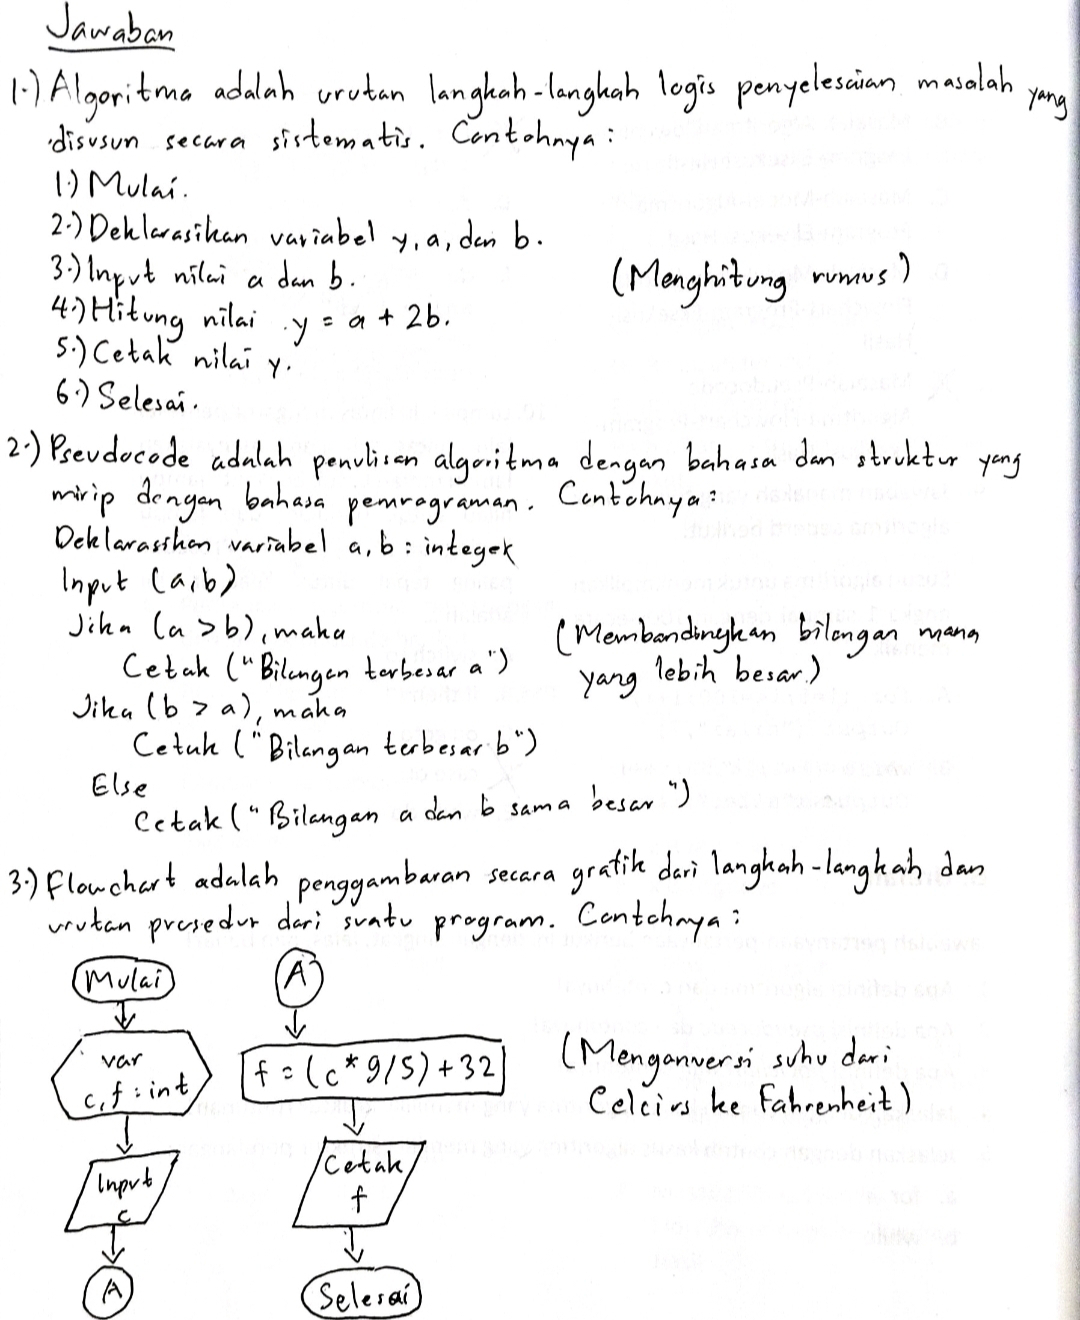 Jawaban
1.) Algoritma adalah urutan langkah-langkah logis penyelesaian masalah yang
disusun secara sistematis. Contohnya :
1.) Mulai.
2.) Deklarasikan variabel y, a, dan b.
3.) Input nilai a dan b.
(Menghitung rumus)
4.) Hitung nilai y = a + 2b.
5.) Cetak nilai y.
6.) Selesai.
2.) Pseudocode adalah penulisan algoritma dengan bahasa dan struktur yang
mirip dengan bahasa pemrograman. Contohnya :
Deklarasikan variabel a, b : integer
Input (a,b)
Jika (a > b), maka
(Membandingkan bilangan mana
Cetak ("Bilangan terbesar a")
yang lebih besar.)
Jika (b > a), maka
Cetak ("Bilangan terbesar b")
Else
Cetak ("Bilangan a dan b sama besar")
3.) Flowchart adalah penggambaran secara grafik dari langkah-langkah dan
urutan prosedur dari suatu program. Contohnya :
Mulai
var
c, f : int
Input
c
A
A
f = (c * 9/5) + 32
Cetak
f
Selesai
(Mengonversi suhu dari
Celcius ke Fahrenheit)